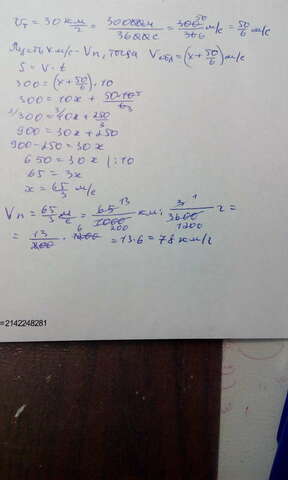 Vт = 30 км/ч = 30000м/3600с = 300/36 м/с = 50/6 м/с
Пусть x м/с - Vп, тогда Vсбл = (x + 50/6) м/с
S = V · t
300 = (x + 50/6) · 10
300 = 10x + 50·10/6
300 = 10x + 250/3
900 = 30x + 250
900 - 250 = 30x
650 = 30x |:10
65 = 3x
x = 65/3 м/с
Vп = 65/3 м/с = 65/1000 км : 3/3600 ч =
= 13/200 · 1200 = 13·6 = 78 км/ч
=2142248281